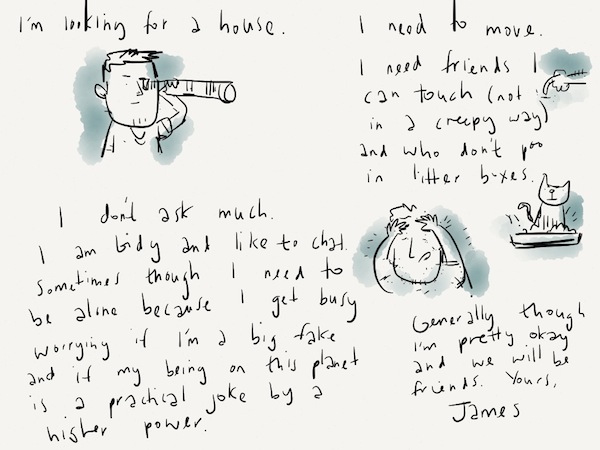 I'm looking for a house.
I don't ask much.
I am tidy and like to chat.
Sometimes though I need to
be alone because I get busy
worrying if I'm a big fake
and if my being on this planet
is a practical joke by a
higher power.
I need to move.
I need friends I
can touch (not
in a creepy way)
and who don't poo
in litter boxes.
Generally though
I'm pretty okay
and we will be
friends. Yours,
James